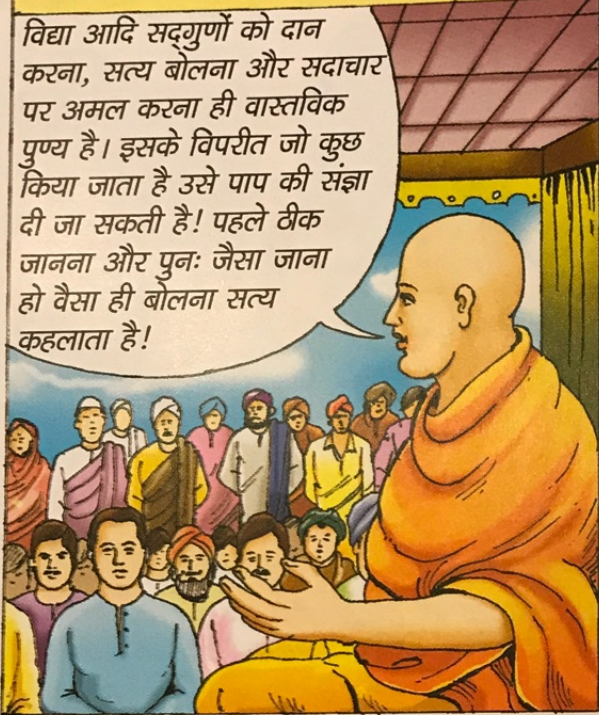 विद्या आदि सद्‌गुणों को दान
करना, सत्य बोलना और सदाचार
पर अमल करना ही वास्तविक
पुण्य है। इसके विपरीत जो कुछ
किया जाता है उसे पाप की संज्ञा
दी जा सकती है! पहले ठीक
जानना और पुनः जैसा जाना
हो वैसा ही बोलना सत्य
कहलाता है!